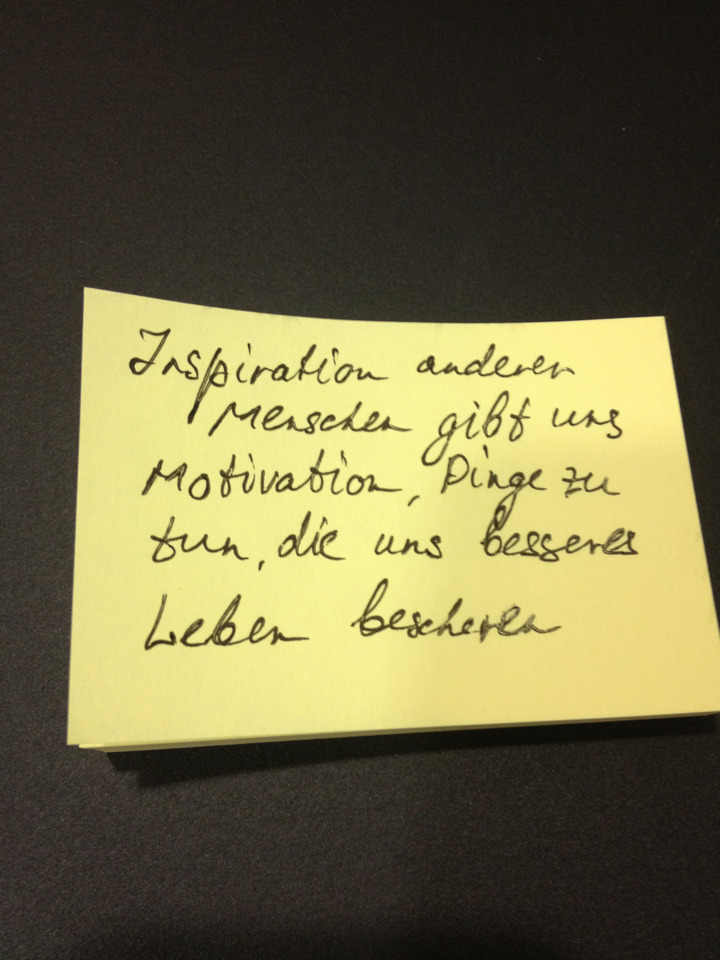 Inspiration anderer
Menschen gibt uns
Motivation, Dinge zu
tun, die uns besseres
Leben bescheren